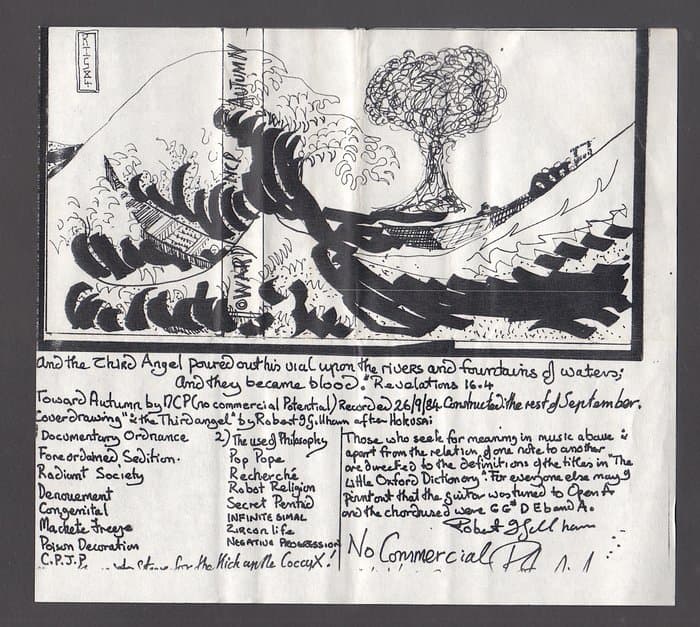 AUTUMN
NCP
TOWARD
And the Third Angel poured out his vial upon the rivers and fountains of waters;
And they became blood." Revalations 16.4
Toward Autumn by NCP (no commercial Potential) Recorded 26/9/84. Constructed the rest of September.
Coverdrawing " the Third angel" by Robert J Gillham after Hokusai
Documentary Ordnance
Foreordained Sedition.
Radiant Society
Denouement
Congenital
Machete Freeze
Poison Decoration
C.P.J.P
2) The use of Philosophy
Pop Pope
Recherché
Robot Religion
Secret Pentad
INFINITESIMAL
Zircon life
NEGATIVE PROGRESSION
Those who seek for meaning in music above &
apart from the relation of one note to another
are directed to the definitions of the titles in "The
Little Oxford Dictionary". For everyone else may I
point out that the guitar was tuned to Open A
and the chords used were G G# D Eb and A.
Robert J Gillham
No Commercial
for the Kick up the CoccyX!